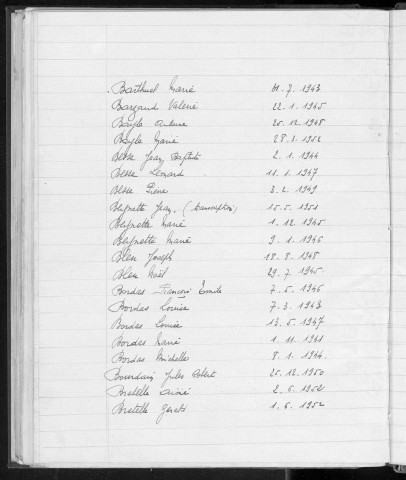 Barthuel Marie 11.7.1943
Bargand Valerie 22.1.1945
Bayle 25.12.1948
Bayle Marie 28.3.1952
Besse Jean Baptiste 2.1.1944
Besse Léonard 11.1.1947
Besse Pierre 3.2.1949
Beynette Jean (transcription) 15.5.1951
Beynette Marie 1.12.1945
Beynette Marie 9.1.1946
Bleu Joseph 18.8.1948
Bleu Noël 29.7.1945
Bordas François Emile 7.5.1946
Bordas Louise 7.3.1943
Bordas Louise 13.5.1947
Bordas Marie 1.11.1941
Bordas Michelle 8.1.1944
Bourdain Jules Albert 25.12.1950
Aimé 2.6.1952
1.6.1952